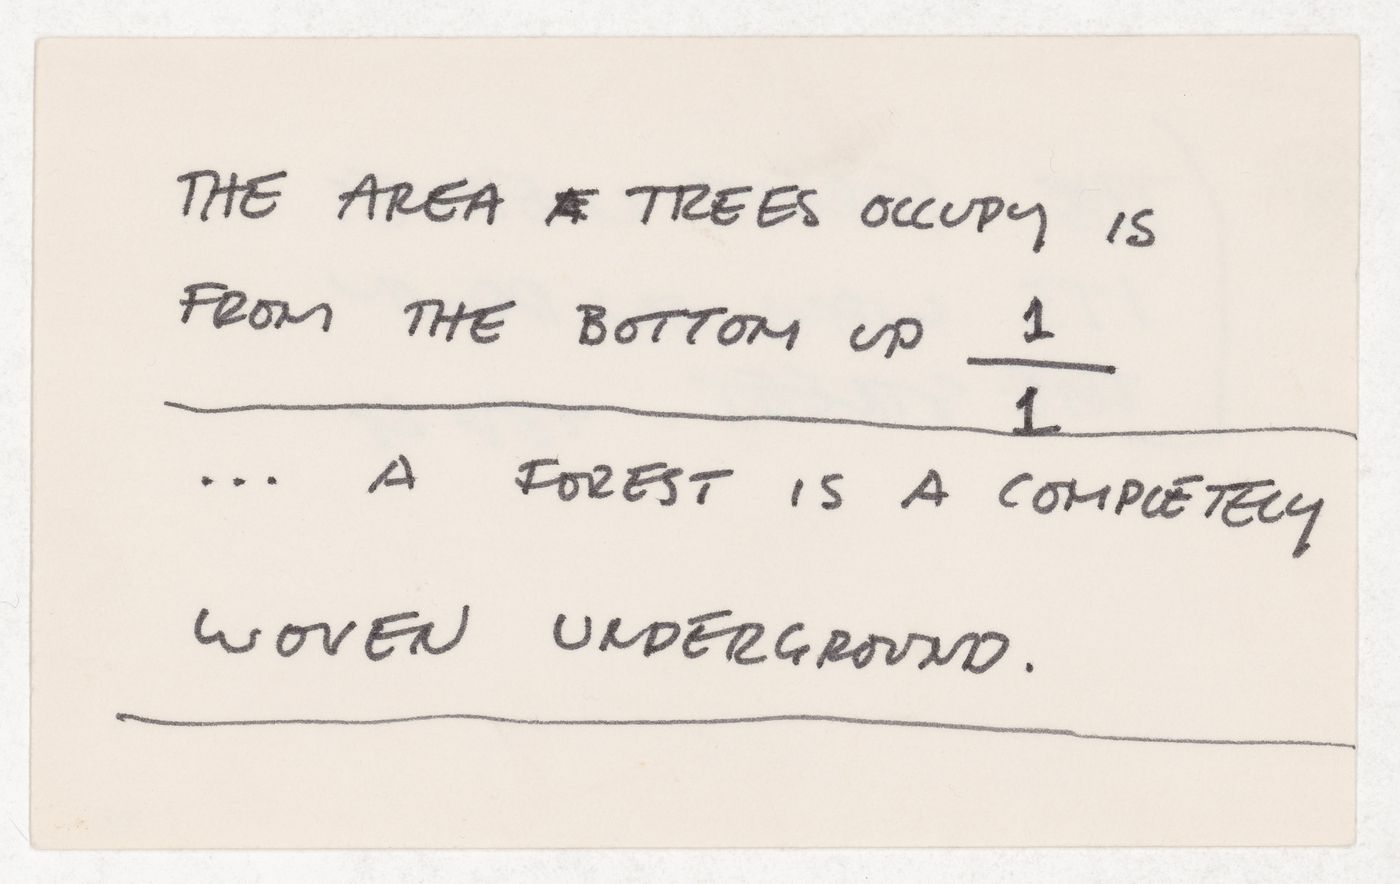 THE AREA TREES OCCUPY IS
FROM THE BOTTOM UP 1
1
... A FOREST IS A COMPLETELY
WOVEN UNDERGROUND.